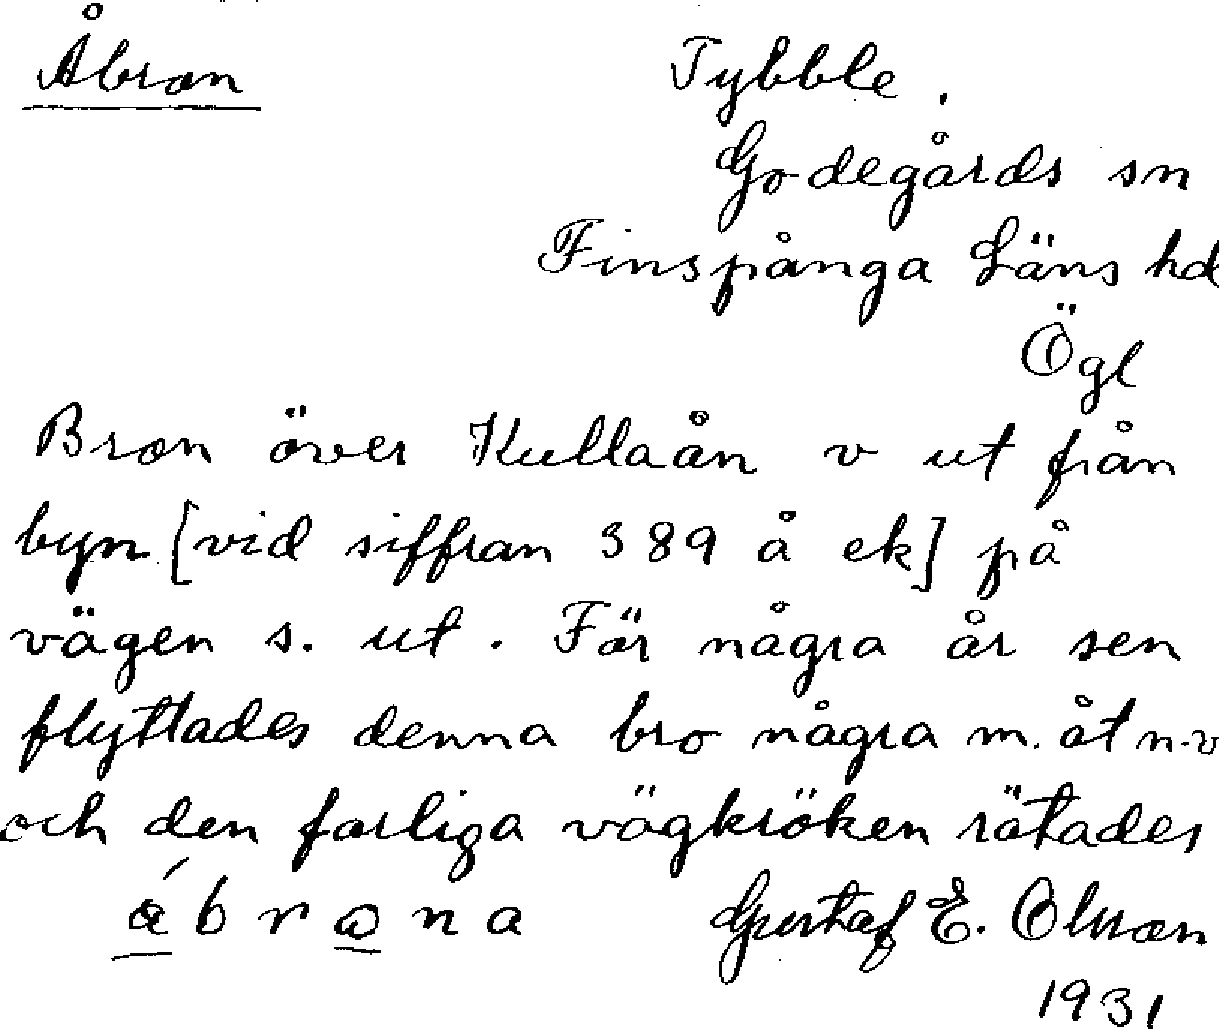 Åbron
Tybble.
Godegårds sn
Finspånga Läns hd
Ögl
Bron över Kullaån v ut från
byn [vid siffran 389 å ek] på
vägen s. ut. För några år sen
flyttades denna bro några m. åt n.v
och den farliga vägkröken rätades
åbrona
Gustaf E. Olsson
1931